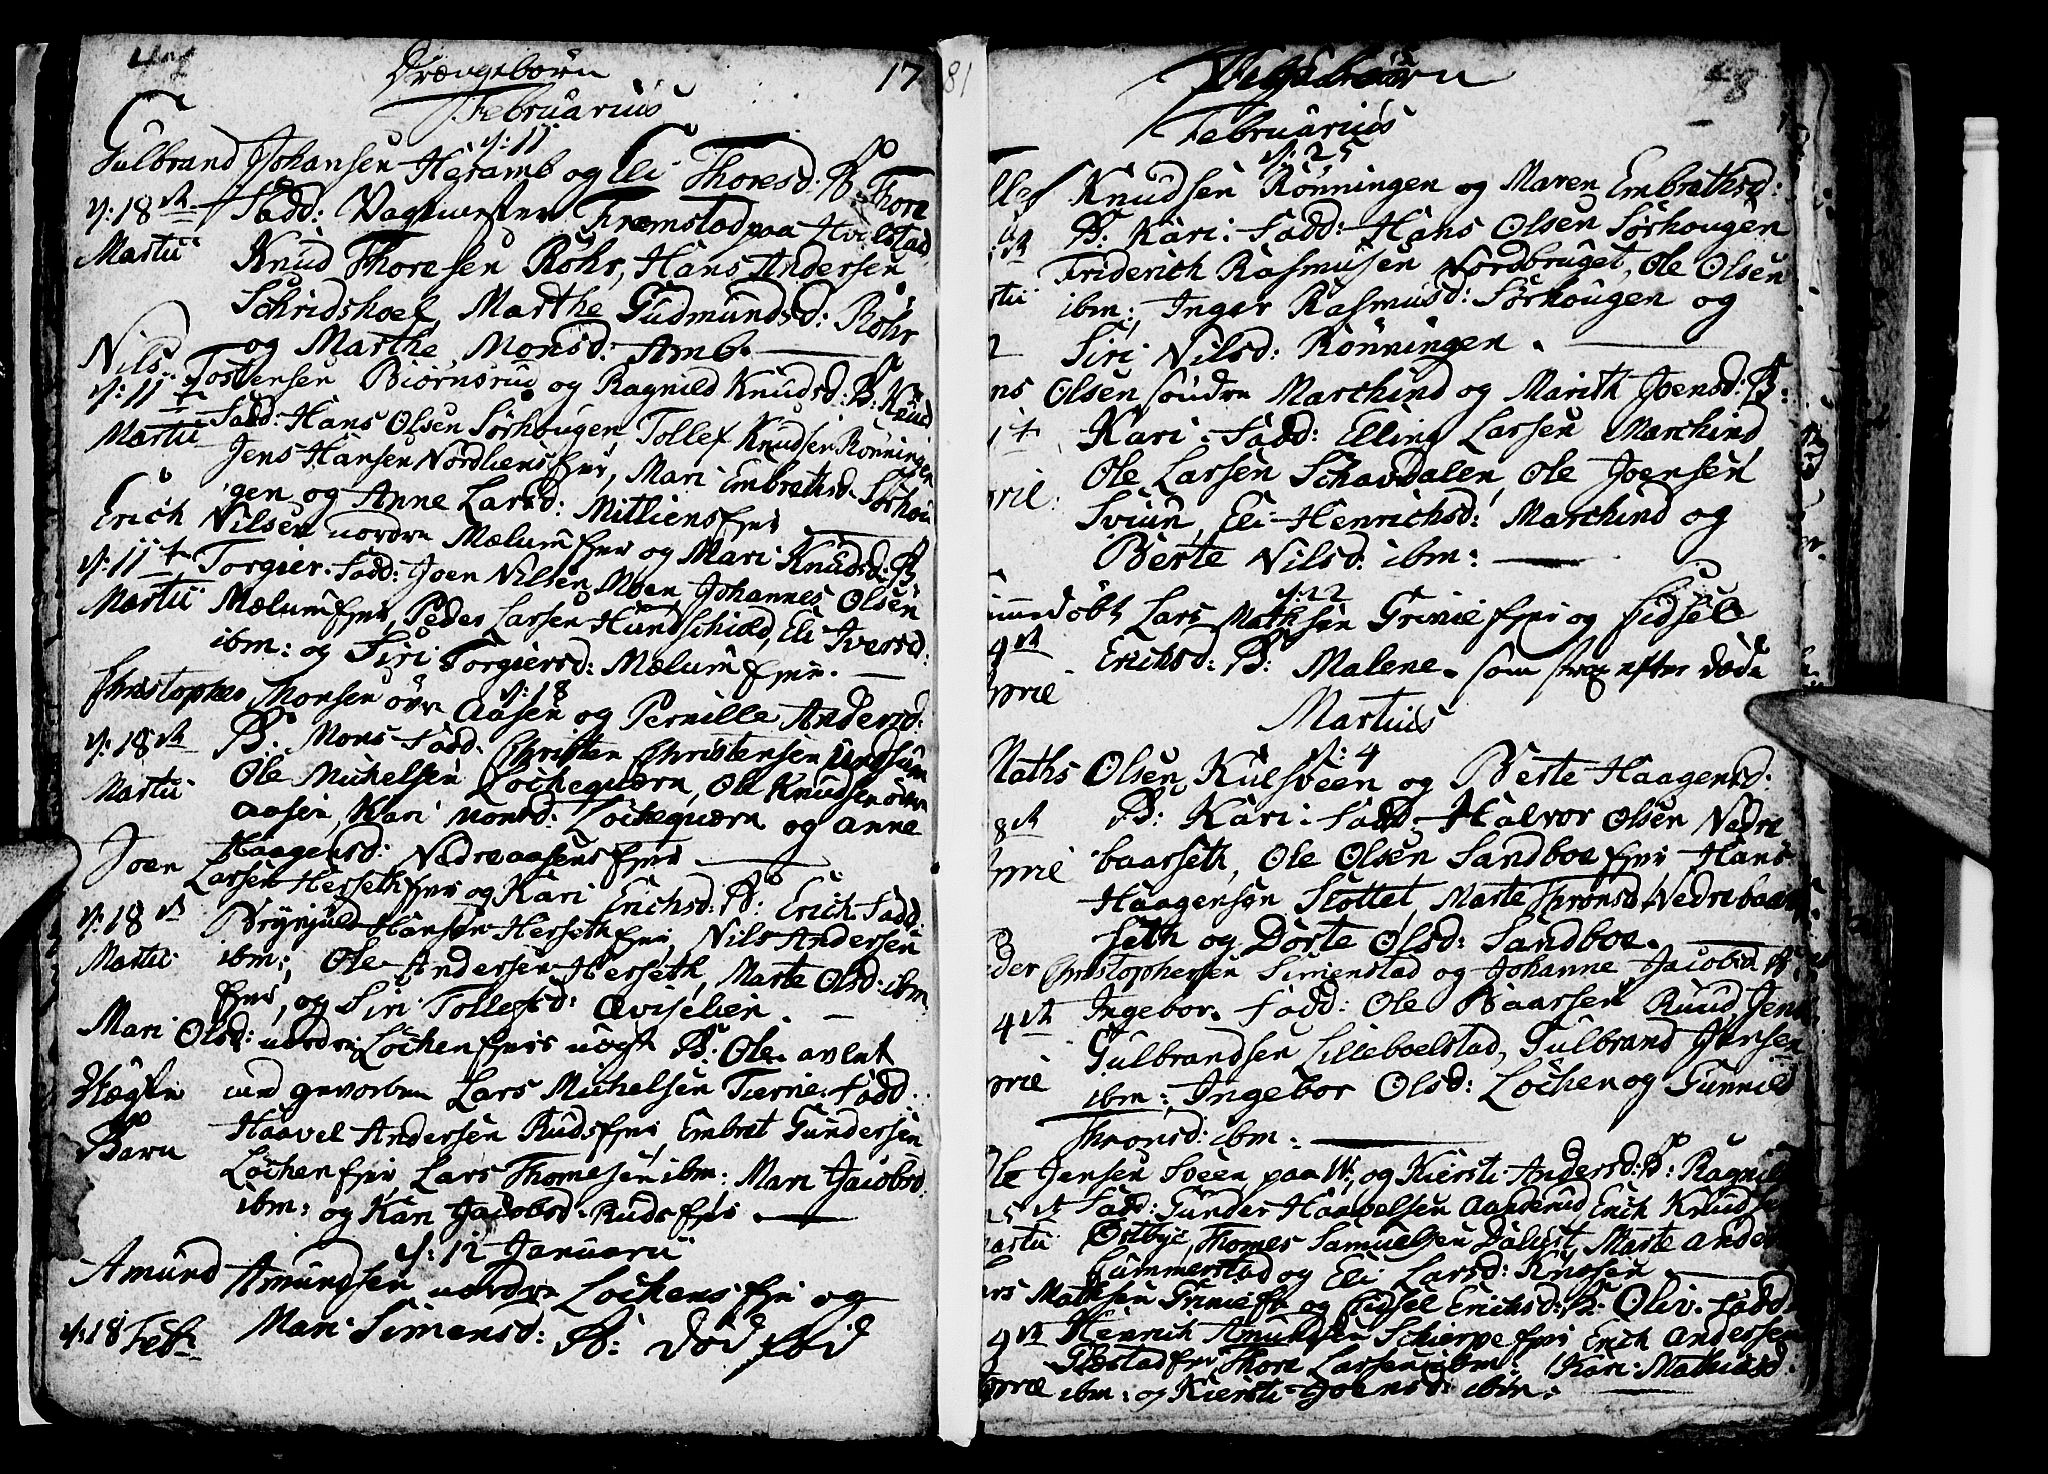 Drængebörn 17
Februarius
d: 11
Gulbrand Johansen Hgramb og Eli Thoresd. B. Thore
d: 18 Fadd: Vagtmester Fremstad paa Hvelstad
Martii Knud Thoresen Rohr, Hans Andersen
Schridshoel, Marthe Gudmundsd: Rohr
og Marthe Monsd: Amb.
Nils Tostensen Biørnsrud og Ragnild Knudsd: B. Knud
d: 11 Fadd: Hans Olsen Sørhougen, Tollef Knudsen Rønningen
Martii Jens Hansen Nordliens Ejer, Mari Embretsd. Sørhou
gen og Anne Larsd: Mitliens ejer
Erich Nilsen nordre Mælum ejer og Mari Knudsd: B.
d: 11 Torgier. Fadd: Joen Nilsen Moen Johannes Olsen
Martii Mælum ejer, Peder Larsen Hundschiold, Eli Iversd:
ibm: og Siri Torgiersd: Mælum ejer.
d: 18
Christopher Monsen övr Aasen og Pernille Andersd:
d: 18 B. Mons Fadd. Christen Christensen Undsum
Martii Ole Michelsen Lochequærn, Ole Knudsen övre
aasen, Kari Monsd: Lochequærn og Anne
Haagensd: Nedreaasens ejer
Joen Larsen Herseth ejer og Kari Erichsd: B: Erich Fadd:
d: 18 Brynjuld Hansen Herseth ejer, Nils Andersen
Martii ibm:, Ole Andersen Herseth, Marte Olsd: ibm
ejer, og Siri Tollefsd: Qviselien.
Mari Olsd: nordre Lochen ejer uægt B: Ole. avlet
Uægte ved gevorben Lars Michelsen Tierne. Fadd:
Barn Haavel Andersen Ruds ejer, Embret Gundersen
Lochen ejer, Lars Thomesen ibm: Mari Jacobsd:
ibm: og Kari Jacobsd. Ruds ejer
d: 12 Januarii
Amund Amundsen nordre Lochens ejer og
d: 18 Feb: Mari Simensd: B: död föd
81
Februarius
d: 25
Knudsen Rönningen og Maren Embrethsd:
B: Kari. Fadd: Hans Olsen Sörhougen
Friderich Rasmusen Nordbruget, Ole Olsen
ibm:, Inger Rasmusd: Sörhougen og
Siri Nilsd: Rönningen.
Olsen söndre Marchind og Marith Joensd: B:
Kari. Fadd: Elling Larsen Marchind
Ole Larsen Schavdalen, Ole Joensen
Sviun, Eli Henrichsd: Marchind og
Berte Nilsd: ibm:
d: 22
Lars Mathsen Grinie ejer og Sidsel
Erichsd: B: Malene. som strax efter döde
Martius
d: 4
Maths Olsen Kulsveen og Berte Haagensd:
B: Kari. Fadd: Halvor Olsen Nedre
baarseth, Ole Olsen Sandboe ejer Hans
Haagensen Slottet, Marte Thronsd Nedrebaar
seth og Dorte Olsd: Sandboe.
Christophersen Simenstad og Johanne Jacobsd B:
Ingebor. Fadd: Ole Baarsen Ruud, Jens
Gulbrandsen Lilleboelstad, Gulbrand Jensen
ibm: Ingebor Olsd: Lochen og Gunnild
Thronsd: ibm:
Ole Jensen Sveen paa W, og Kiersti Andersd: B: Ragnild
Fadd: Gunder Haavelsen Aanderud Erich Knudsen
Martii Østbye, Thomes Samuelsen Dalust, Marte Anders
Gummerstad og Eli Larsd: Knösen
Mathsen Grinie ejr og Sidsel Erichsd: B: Oliv. Fadd:
Henrich Amundsen Schierpe ejer Erich Andersen
Glæstad ejer Thore Larsen ibm: Kari Mathiasd:
ibm: og Kiersti Joensd: ibm: